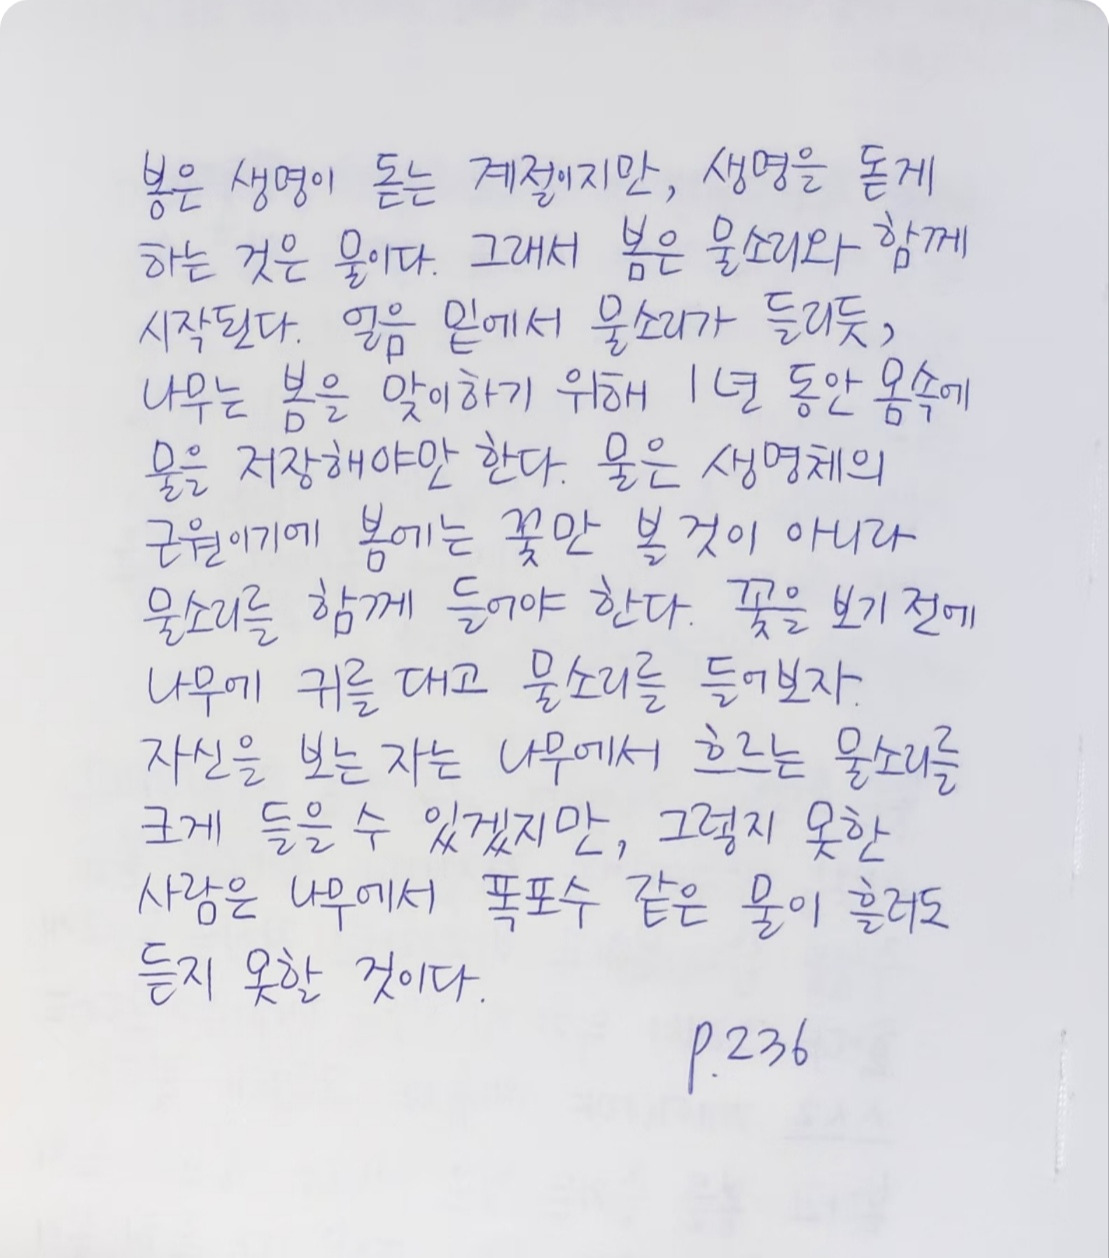 봄은 생명이 돋는 계절이지만, 생명을 돋게
하는 것은 물이다. 그래서 봄은 물소리와 함께
시작된다. 얼음 밑에서 물소리가 들리듯,
나무는 봄을 맞이하기 위해 1년 동안 몸속에
물을 저장해야만 한다. 물은 생명체의
근원이기에 봄에는 꽃만 볼 것이 아니라
물소리를 함께 들어야 한다. 꽃을 보기 전에
나무에 귀를 대고 물소리를 들어보자.
자신을 보는 자는 나무에서 흐르는 물소리를
크게 들을 수 있겠지만, 그렇지 못한
사람은 나무에서 폭포수 같은 물이 흘러도
듣지 못할 것이다.
p.236